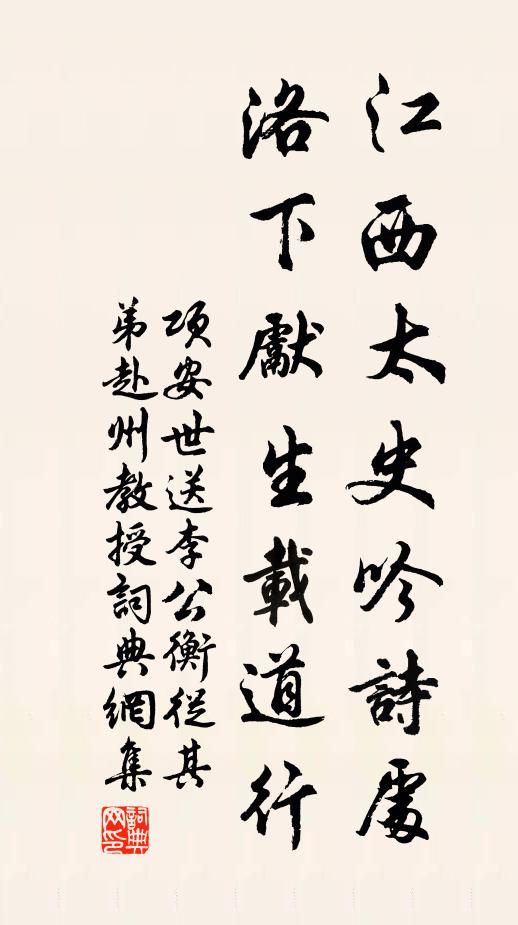 江西太史吟詩處
洛下獻生載道行
項安世送李公衡從其
弟赴州教授詞典網集
詞典網印